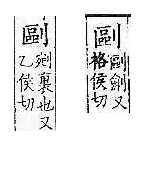 剾
副劍又
格侯切
剾
剜裏也又
乙侯切